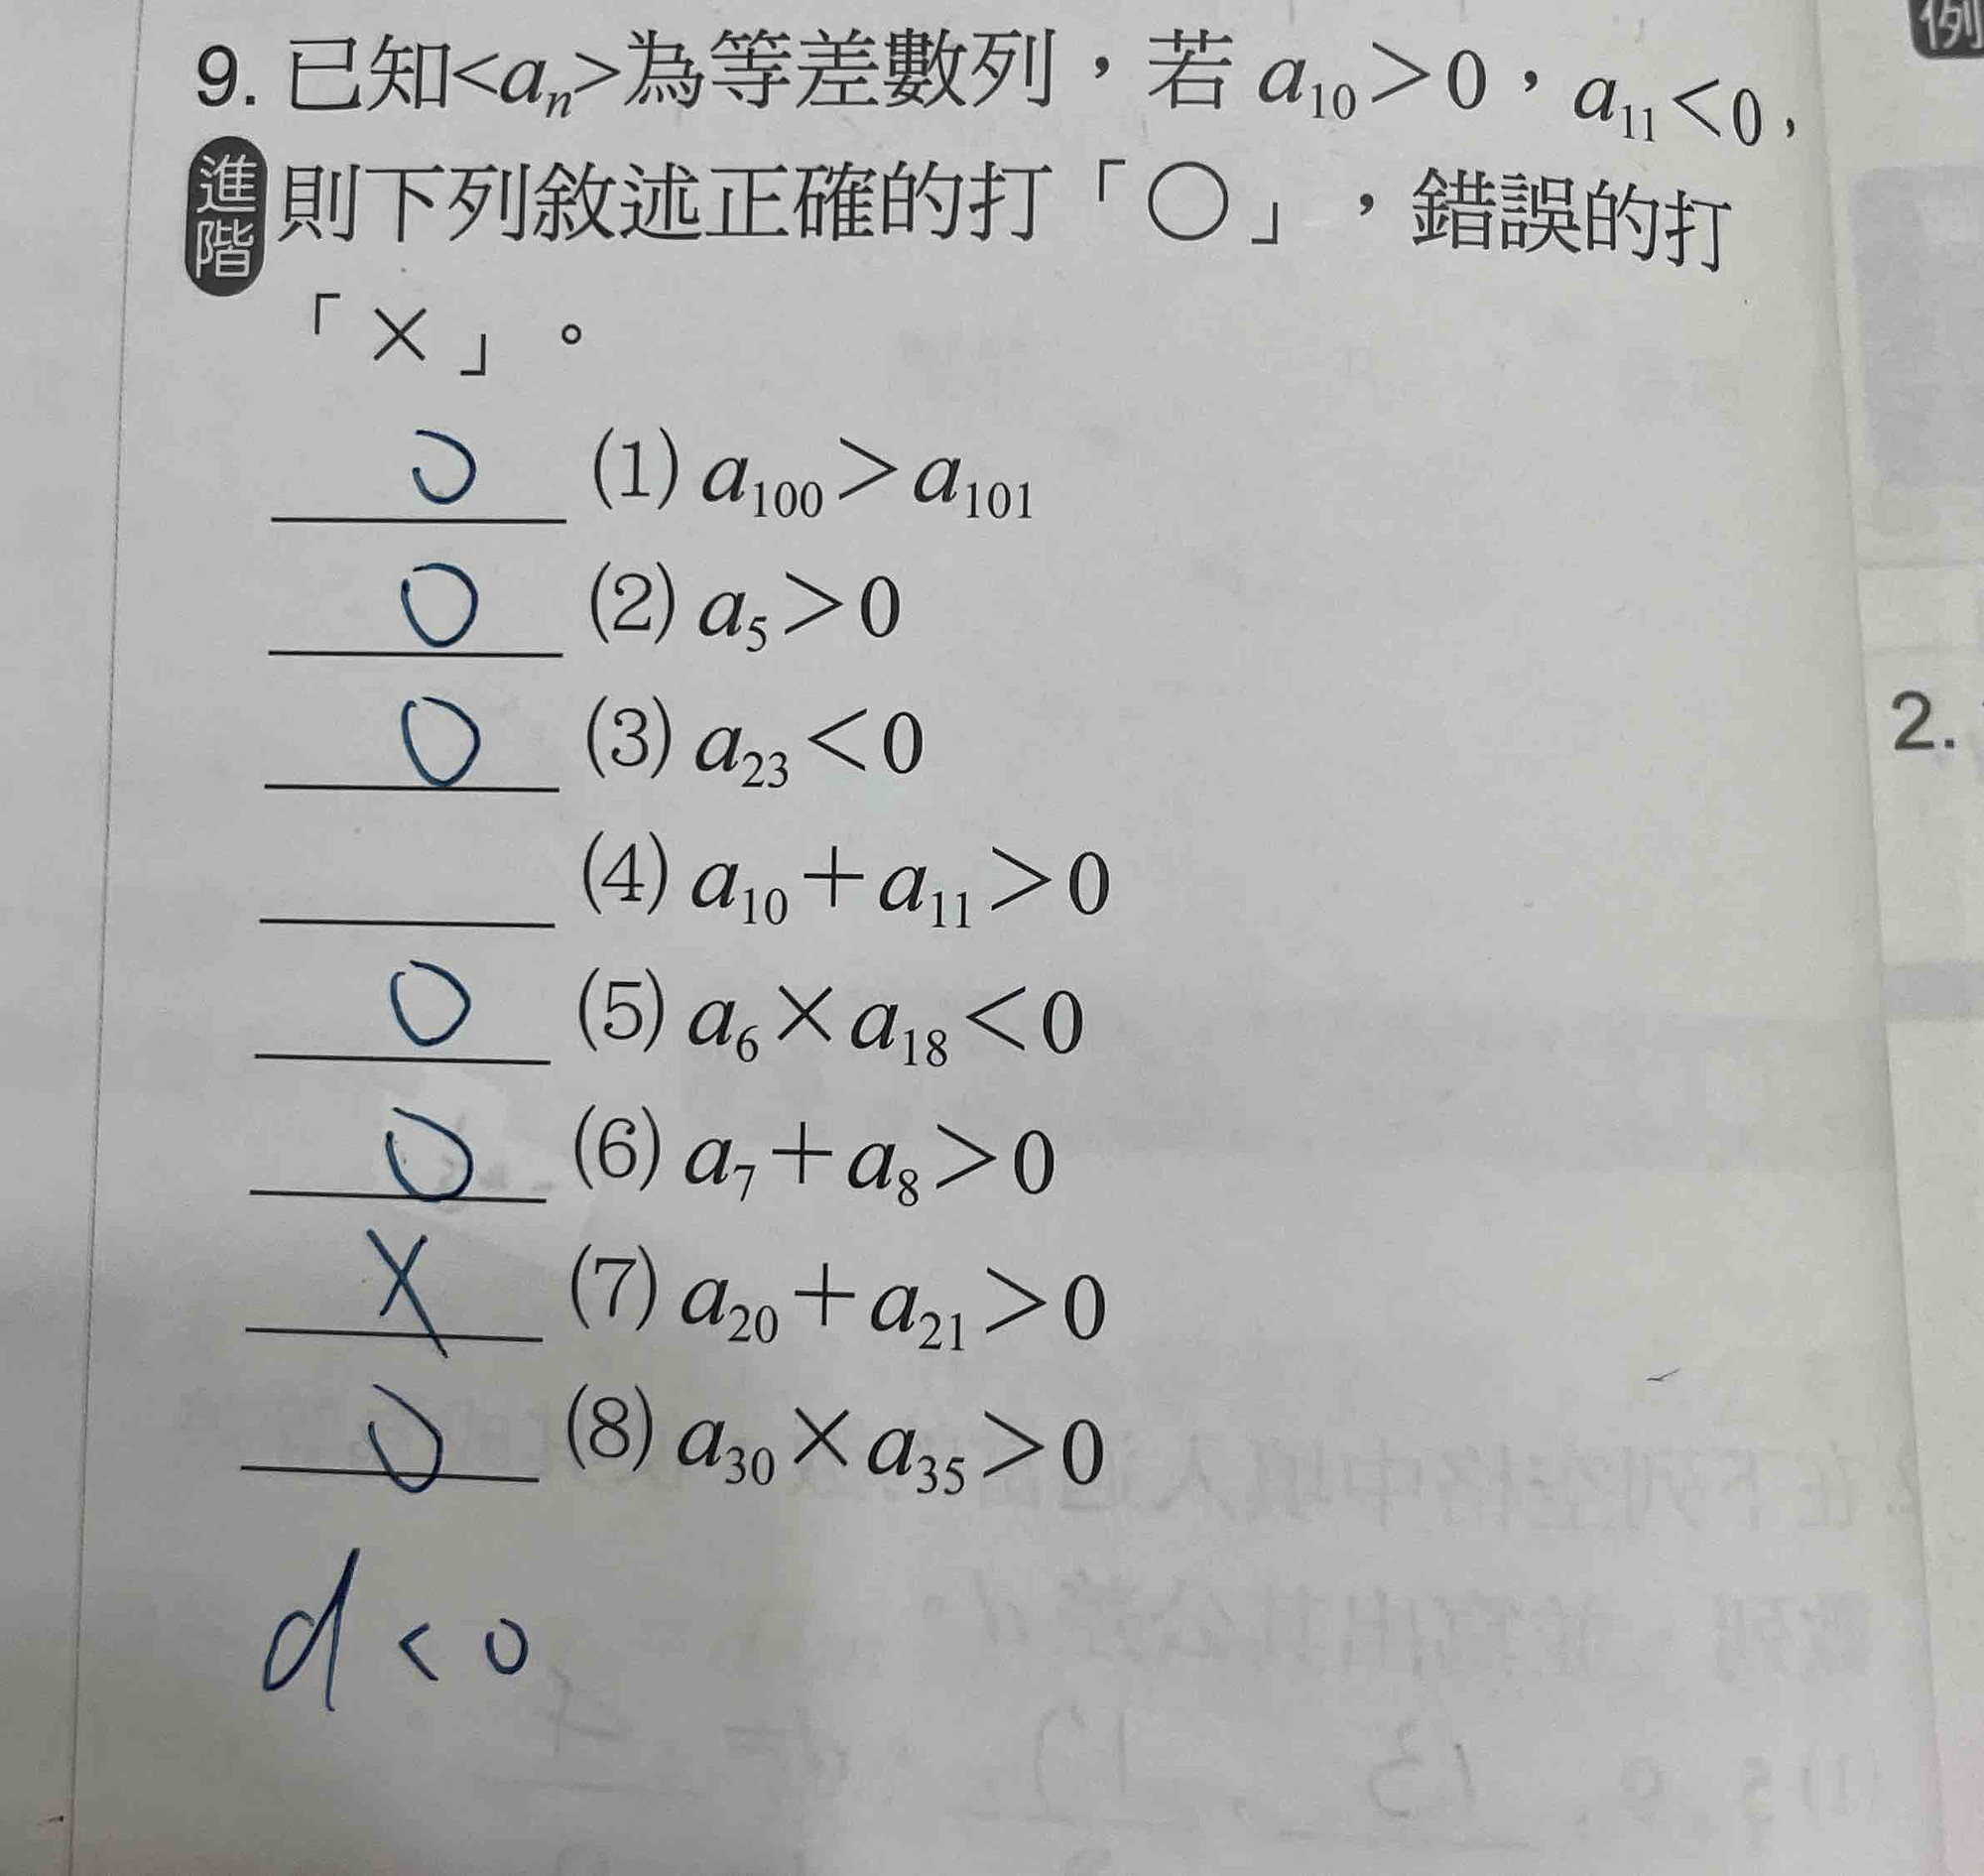 例
9. 已知<aₙ>為等差數列，若 a₁₀>0，a₁₁<0，
進階
則下列敘述正確的打「○」，錯誤的打
「×」。
O (1) a₁₀₀>a₁₀₁
O (2) a₅>0
O (3) a₂₃<0
(4) a₁₀+a₁₁>0
O (5) a₆×a₁₈<0
O (6) a₇+a₈>0
X (7) a₂₀+a₂₁>0
O (8) a₃₀×a₃₅>0
d<0
2.